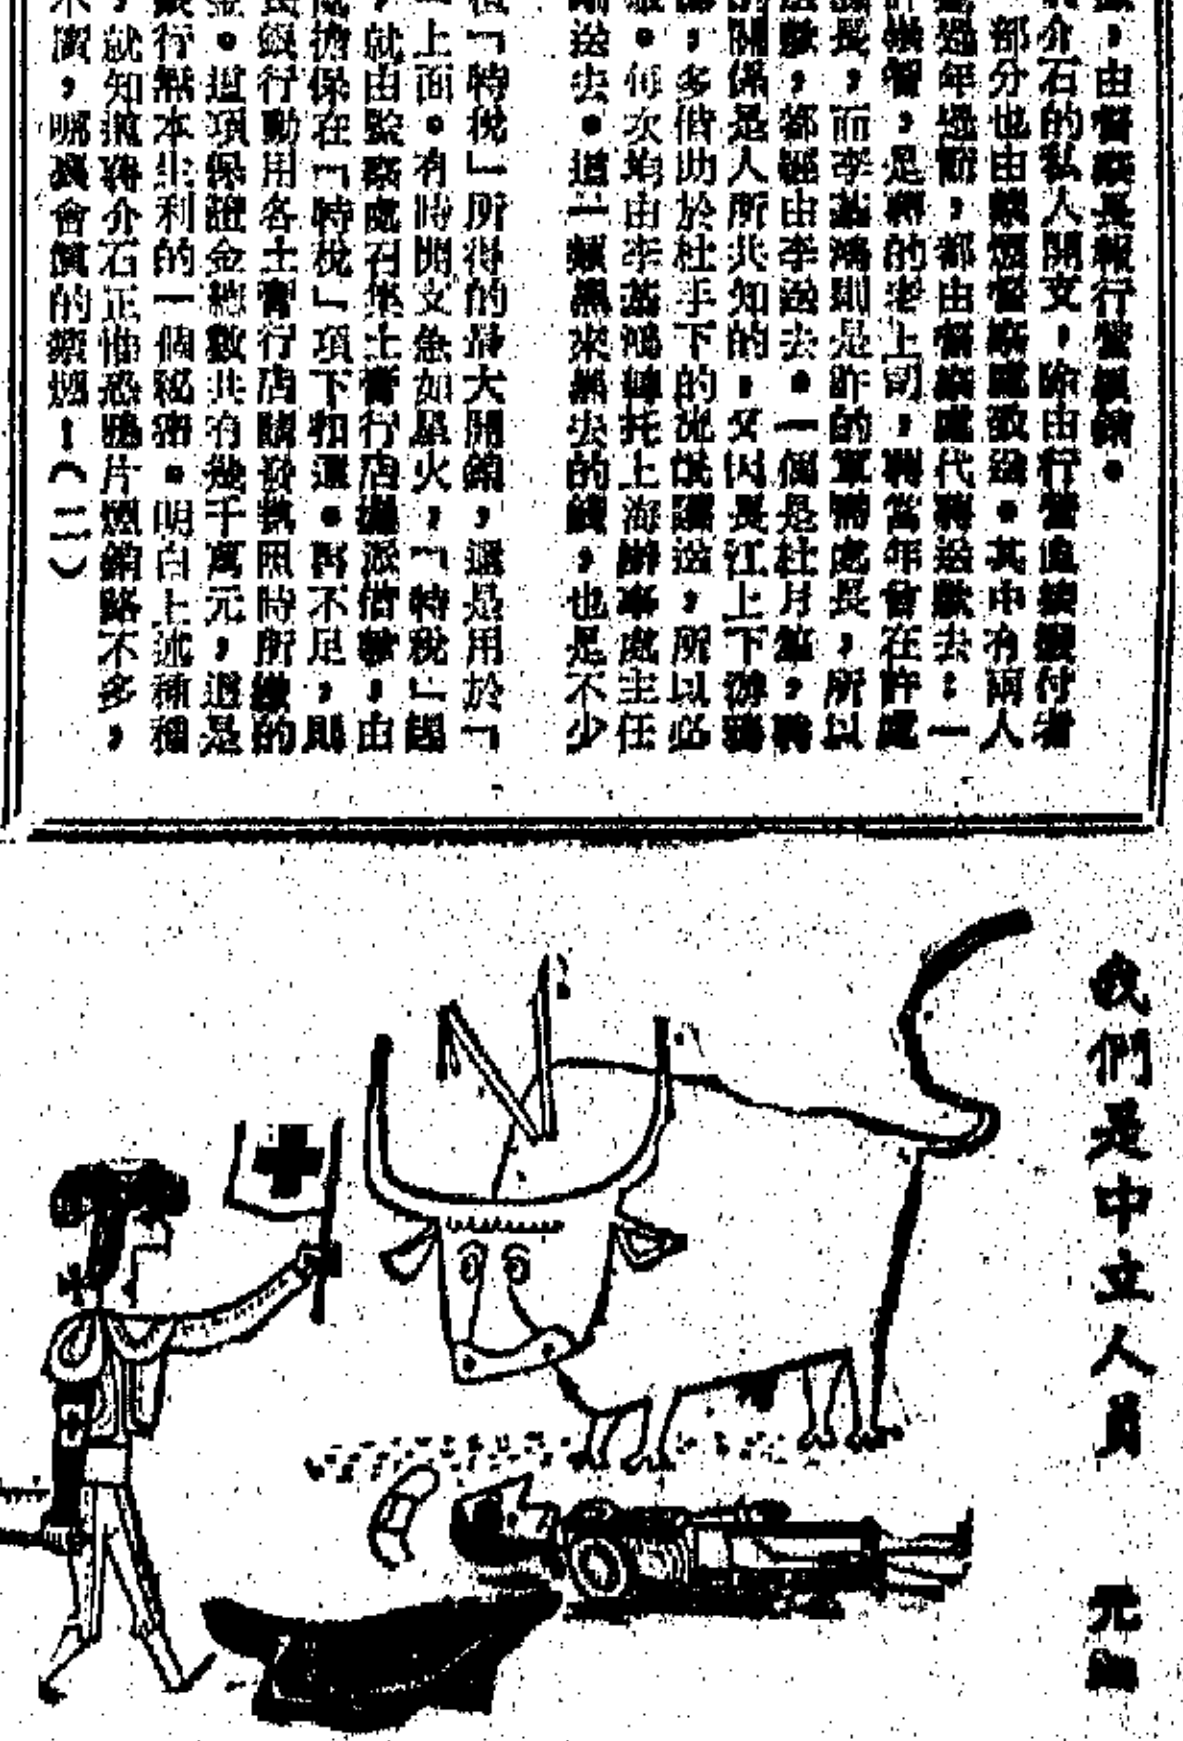 ，由督察長報行營報銷。
介石的私人開支，除由行營直接撥付者
部分也由禁煙督察處致送。其中有兩人
過年過節，都由督察處代蔣送款去；一
許崇智，是蔣的老上司，蔣當年曾在許處
長，而李基鴻則是許的軍需處長，所以
款，都經由李送去。一個是杜月笙，蔣
的關係是人所共知的，又因長江上下游鴉
，多借助於杜手下的護送，所以必
。每次均由李基鴻轉托上海辦事處主任
送去。這一類黑來黑去的錢，也是不少
「特稅」所得的最大開銷，還是用於「
上面。有時開支急如星火，「特稅」趕
，就由監察處召集土膏行店攤派借款，由
處擔保在「特稅」項下扣還。再不足，則
民銀行動用各土膏行店請發執照時所繳的
金。這項保證金總數共有幾千萬元，這是
銀行無本生利的一個秘密。明白上述種種
，就知道蔣介石正怕恐鴉片煙銷路不多，
不廣，哪裏會真的禁煙！（二）
我們是中立人員
元